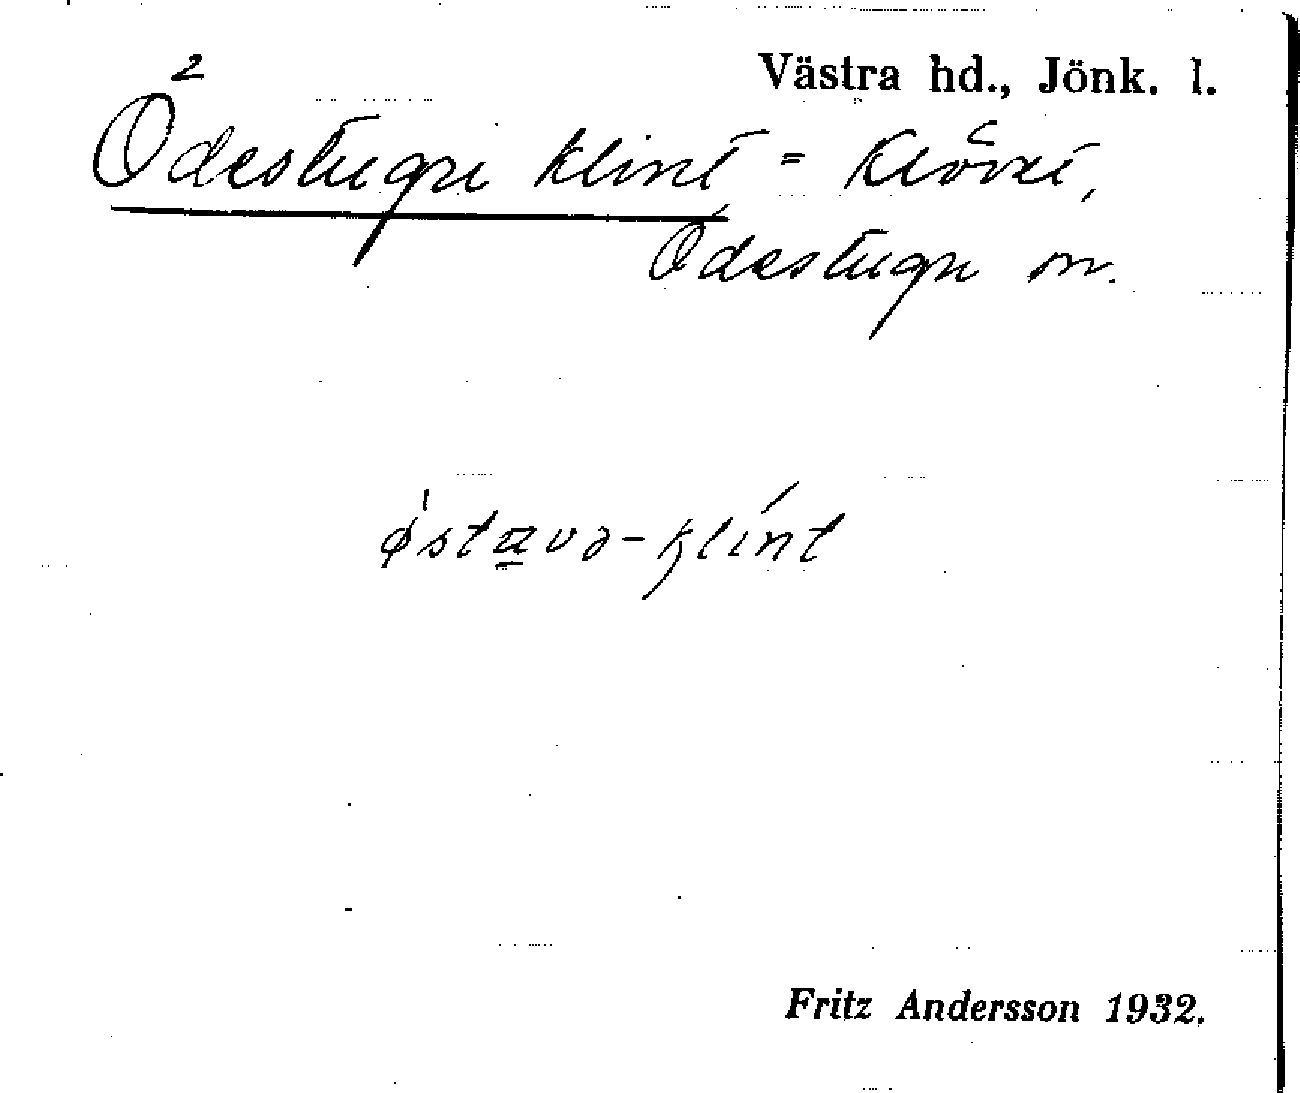 Västra hd., Jönk. l.
Ödestugu klint = Klövet,
Ödestugu sn.
østavə-klint
Fritz Andersson 1932.